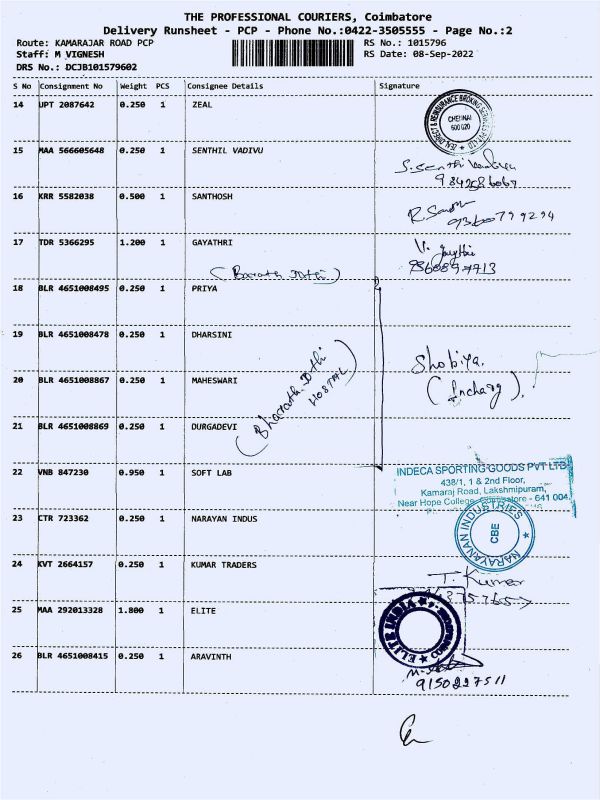 THE PROFESSIONAL COURIERS, Coimbatore
Delivery Runsheet - PCP - Phone No.:0422-3505555 - Page No.:2
Route: KAMARAJAR ROAD PCP RS No.: 1015796
Staff: M VIGNESH RS Date: 08-Sep-2022
DRS No.: DCJB101579602
S No Consignment No Weight PCS Consignee Details Signature
14 UPT 2087642 0.250 1 ZEAL
CHENNAI
600 020
15 MAA 566605648 0.250 1 SENTHIL VADIVU
16 KRR 5582038 0.500 1 SANTHOSH
17 TDR 5366295 1.200 1 GAYATHRI
(Barath Jothi)
18 BLR 4651008495 0.250 1 PRIYA
19 BLR 4651008478 0.250 1 DHARSINI
Shobiya.
(Incharg).
20 BLR 4651008867 0.250 1 MAHESWARI
(Bharath Jothi
HOSTAL)
21 BLR 4651008869 0.250 1 DURGADEVI
22 VNB 847230 0.950 1 SOFT LAB
INDECA SPORTING GOODS PVT LTD
438/1, 1 & 2nd Floor,
Kamaraj Road, Lakshmipuram,
Near Hope College, Coimbatore - 641 004
23 CTR 723362 0.250 1 NARAYAN INDUS
NARAYANAN INDUSTRIES
CBE
24 KVT 2664157 0.250 1 KUMAR TRADERS
T. Kumar
25 MAA 292013328 1.800 1 ELITE
ELITE INDIA
26 BLR 4651008415 0.250 1 ARAVINTH
9150227511